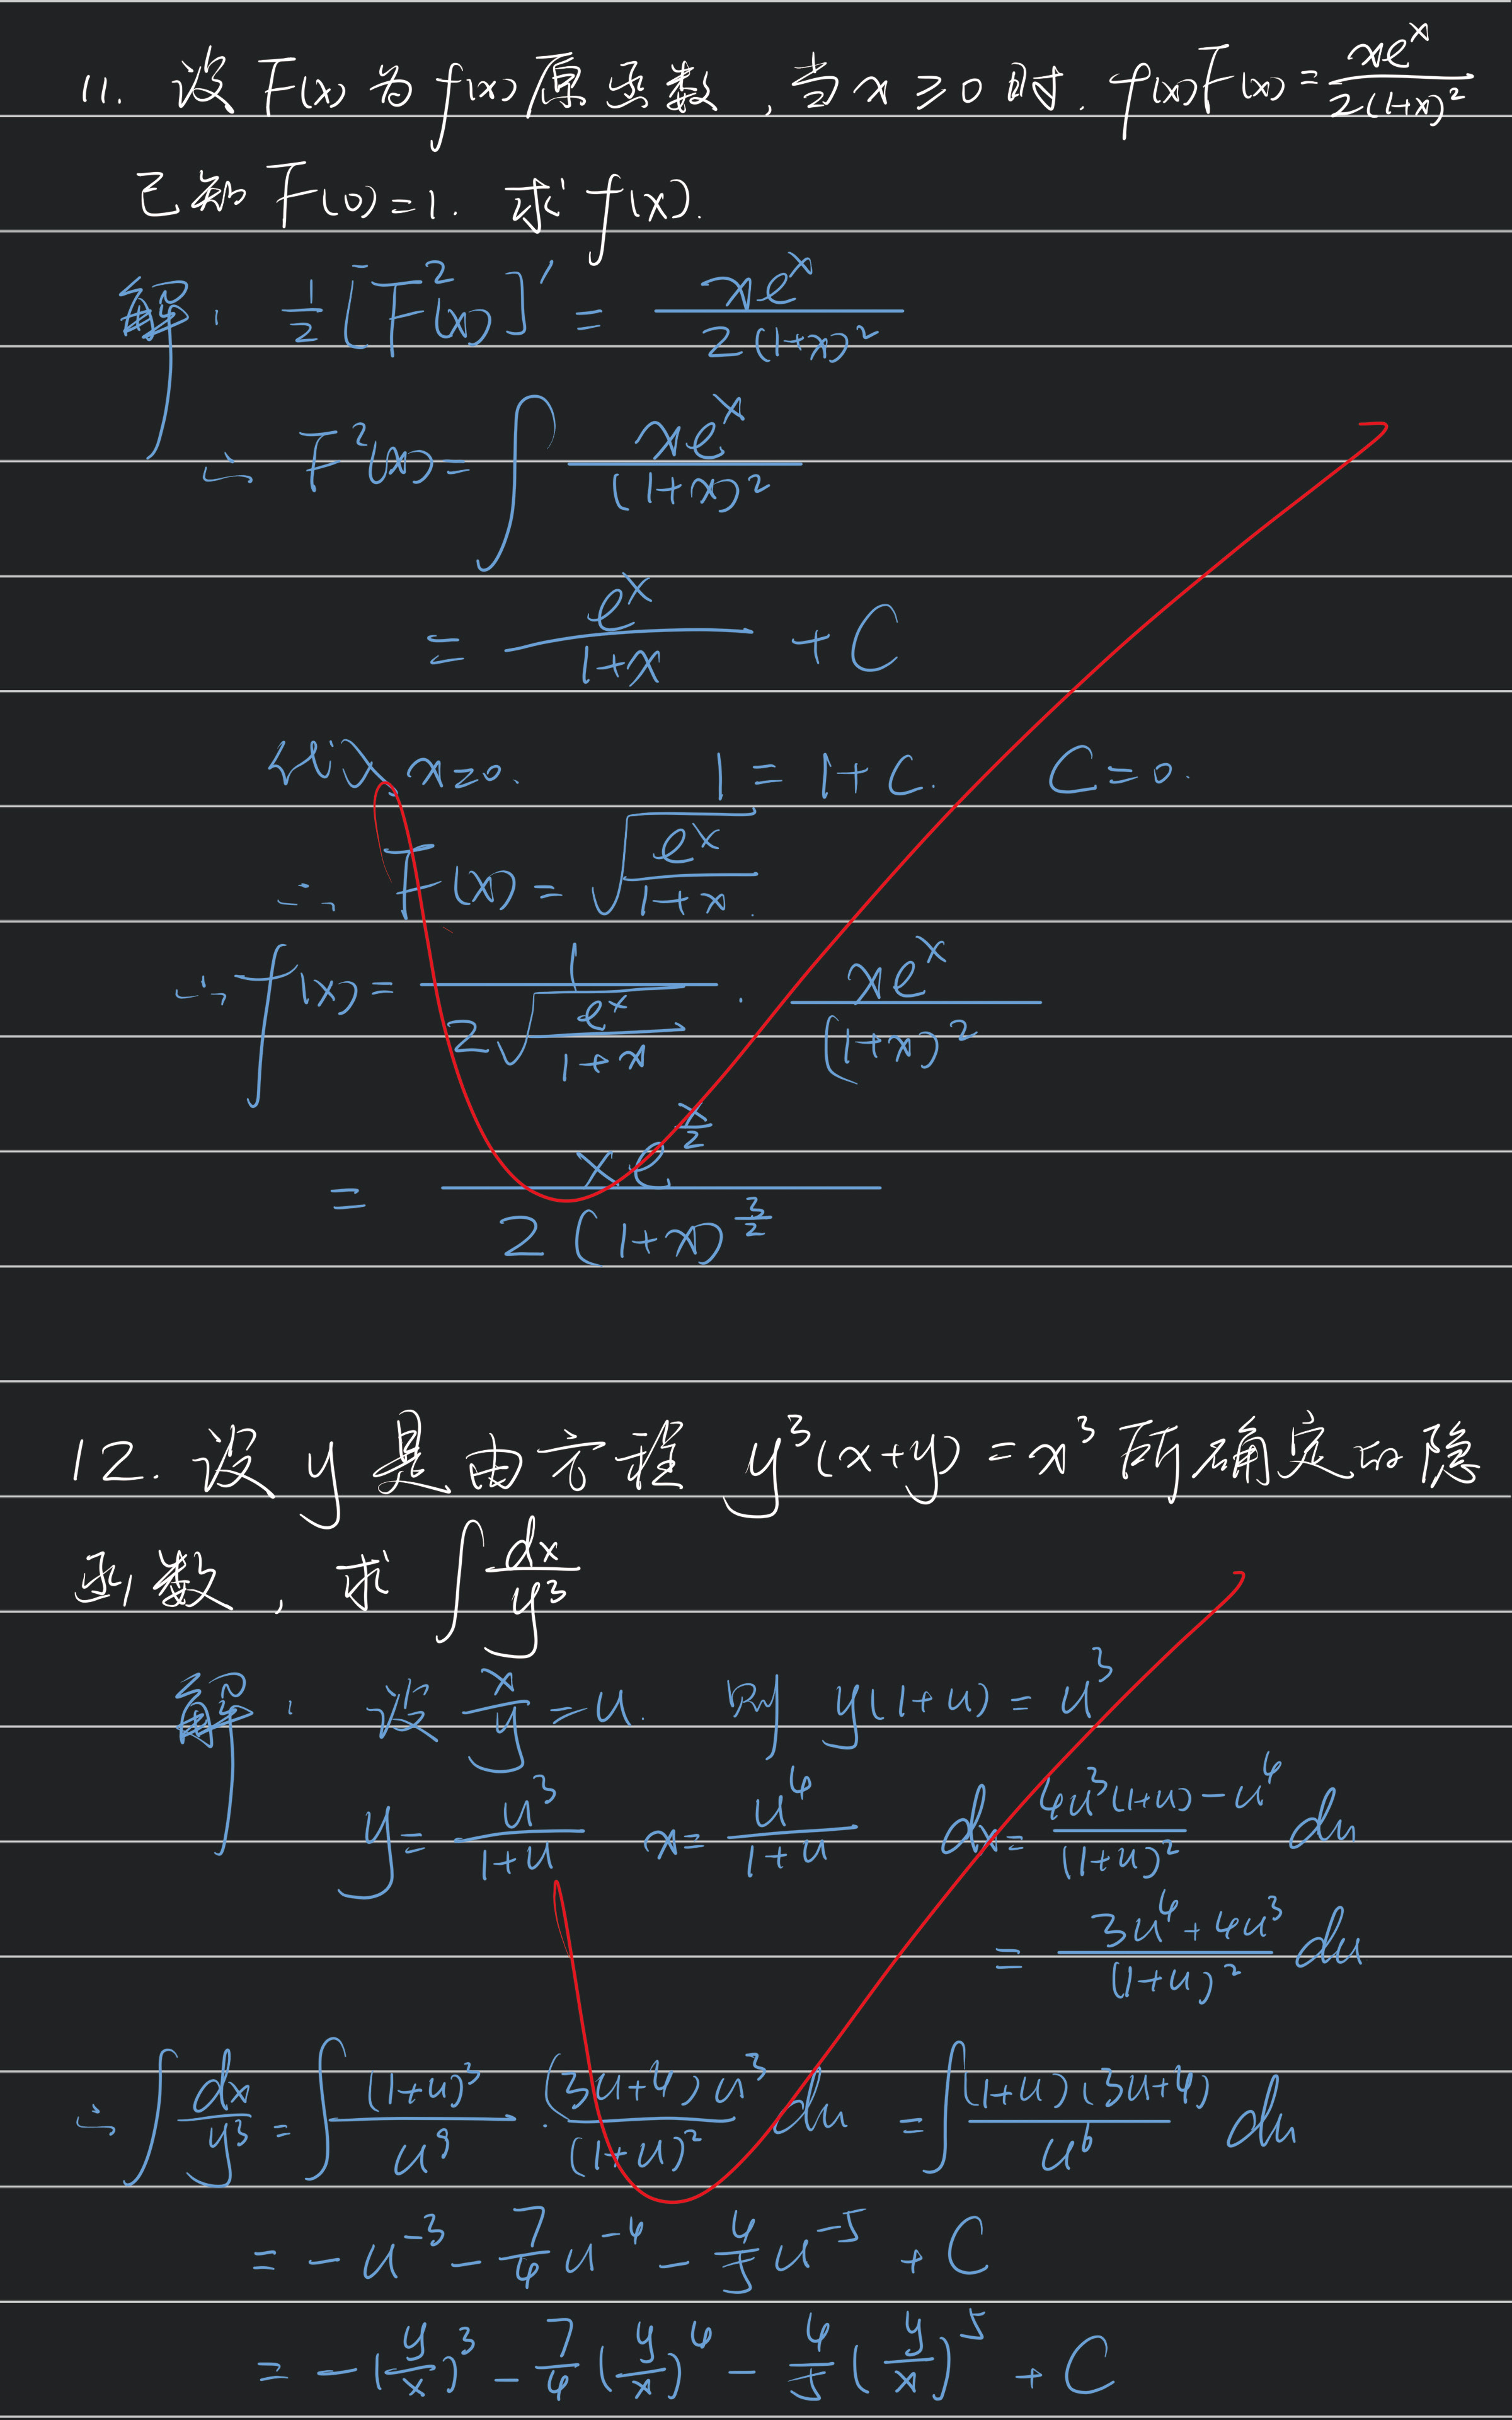 11. 设 F(x) 为 f(x) 原函数, 当 x ≥ 0 时. f(x)F(x) = \frac{xe^x}{2(1+x)^2}
已知 F(0)=1. 求 f(x).
解: \frac{1}{2}[F^2(x)]' = \frac{xe^x}{2(1+x)^2}
∴ F^2(x) = ∫ \frac{xe^x}{(1+x)^2}
= \frac{e^x}{1+x} + C
代入 x=0. 1 = 1+C. C=0.
∴ F(x) = \sqrt{\frac{e^x}{1+x}}.
∴ f(x) = \frac{1}{2\sqrt{\frac{e^x}{1+x}}} · \frac{xe^x}{(1+x)^2}
= \frac{xe^{\frac{x}{2}}}{2(1+x)^{\frac{3}{2}}}
12. 设 y 是由方程 y^3(x+y) = x^3 所确定的隐
函数, 求 ∫\frac{dx}{y^3}
解: 设 \frac{x}{y} = u. 则 y(1+u) = u^3
y = \frac{u^3}{1+u} x = \frac{u^4}{1+u} dx = \frac{4u^3(1+u)-u^4}{(1+u)^2} du
= \frac{3u^4+4u^3}{(1+u)^2} du
∴ ∫\frac{dx}{y^3} = ∫\frac{(1+u)^3}{u^9} · \frac{(3u+4)u^3}{(1+u)^2} du = ∫\frac{(1+u)(3u+4)}{u^6} du
= -u^{-3} - \frac{7}{4}u^{-4} - \frac{4}{5}u^{-5} + C
= -(\frac{y}{x})^3 - \frac{7}{4}(\frac{y}{x})^4 - \frac{4}{5}(\frac{y}{x})^5 + C